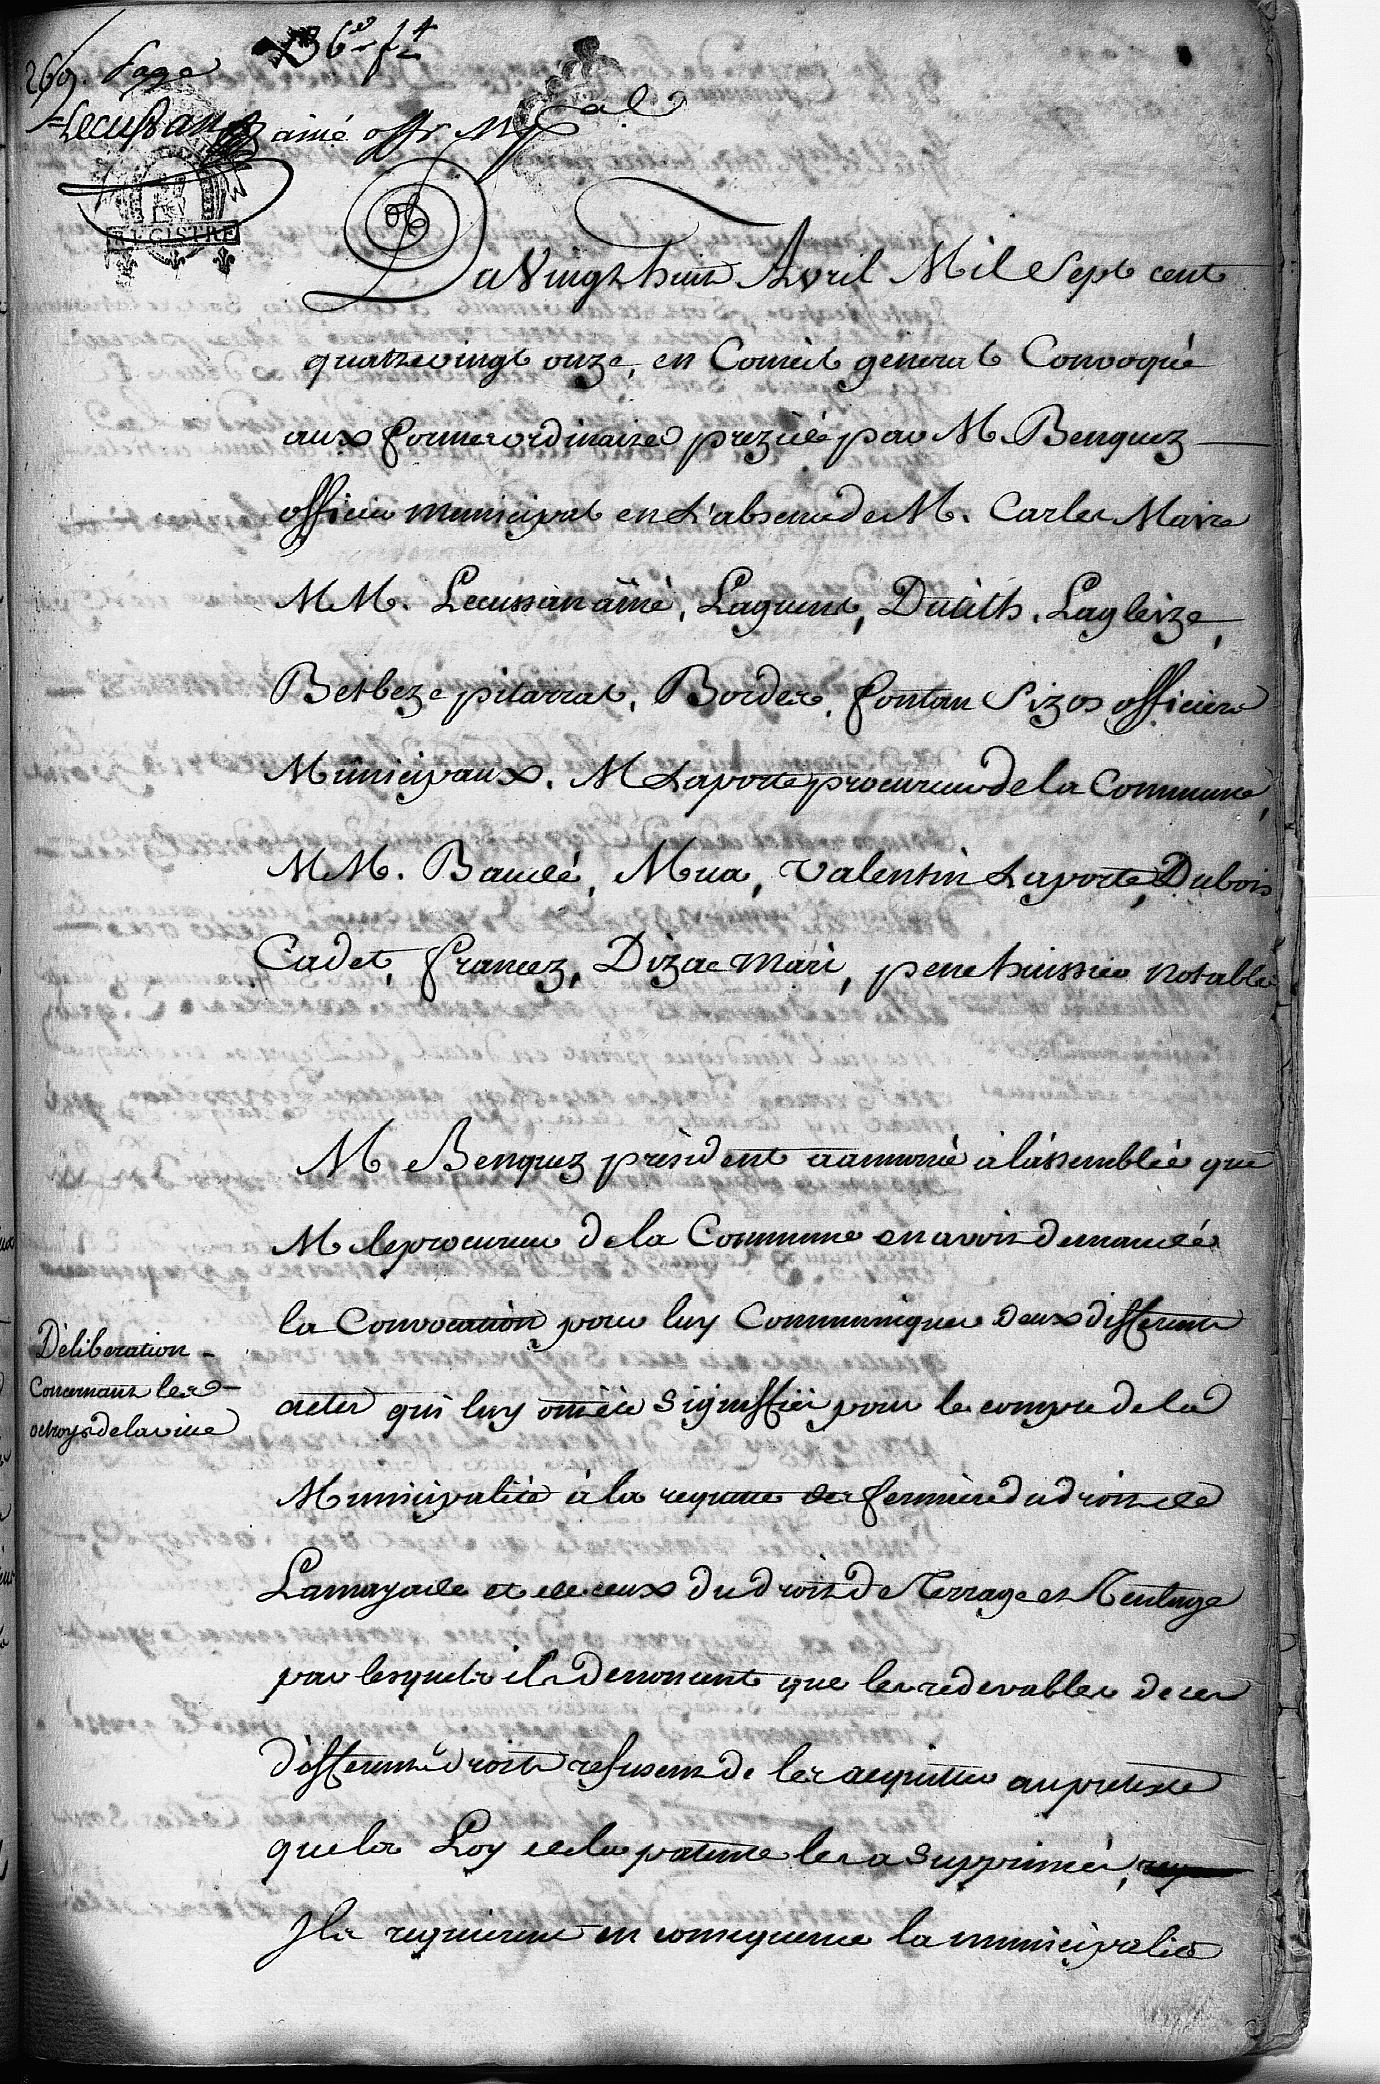 269. page 136e f.t
Lecussan ainé offr mpal
REGISTRE
Du Vingt huit Avril Mil Sept cent
quatrevingt onze, en Conseil general Convoqué
aux formes ordinaires prezidé par M. Benquez
officier municipal en L'absence de M. Carles Maire
MM. Lecussan ainé, Laguens, Duclth, Lagleize,
Betbeze pitarrat, Borderes, fontan Sizos officiers
Municipaux. M Laporte procureur de la Commune,
MM. Baudé, Mua, Valentin Laporte, Dubois
Cadet, francez, Dizac Mari, pene huissier notables
M Benquez président a annoncé à l'assemblée que
M le procureur de la Commune en avoit demandé
la Convocation pour luy Communiquer deux differents
actes qui luy ont été signiffiés pour le compte de la
Municipalité à la requette des fermiers du droit de
Lamayade et de ceux du droit de Terrage et Taulage
par lesquels ils denoncent que les redevables de ces
differents droits refusent de les acquitter au pretexte
que la Loy de la patente les a supprimés,
Ils requierent en consequence la municipalité
Déliberation
Concernant les
octroys de la ville